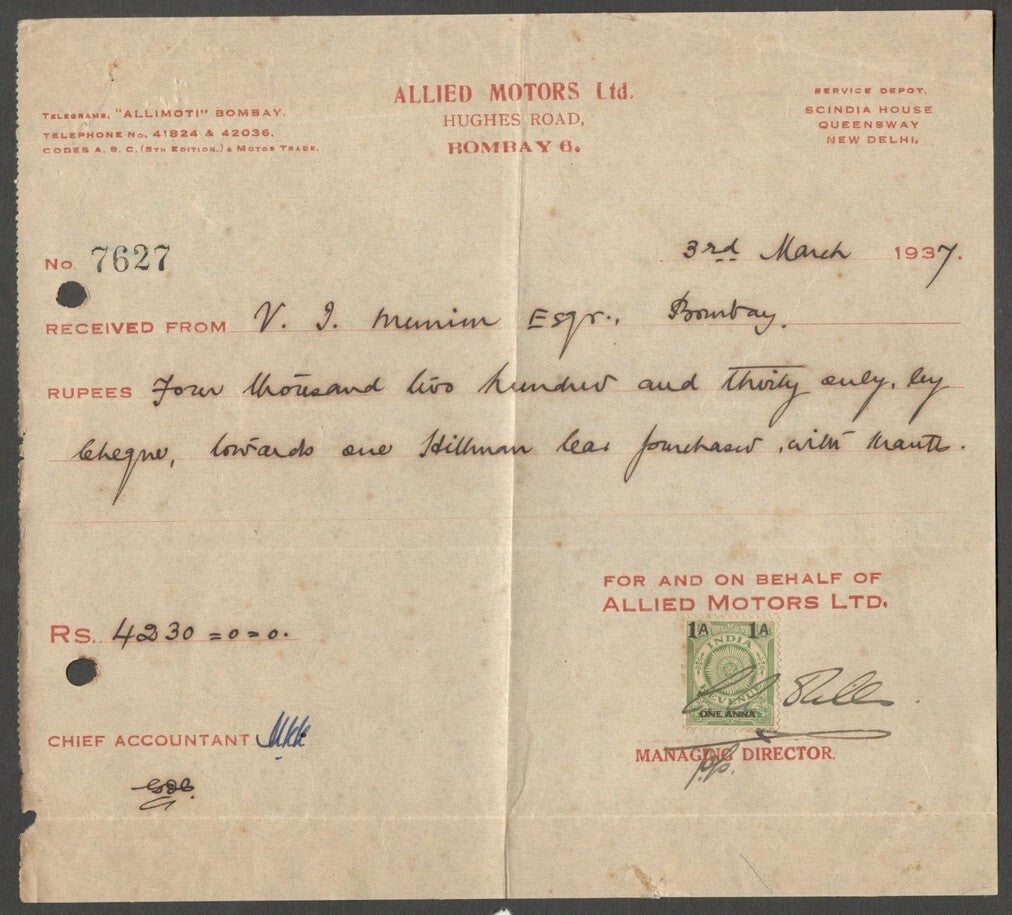 ALLIED MOTORS Ltd.
HUGHES ROAD,
BOMBAY 6.
TELEGRAMS, "ALLIMOTI" BOMBAY.
TELEPHONE No. 41824 & 42036.
CODES A. B. C. (5TH EDITION.) & MOTOR TRADE.
SERVICE DEPOT,
SCINDIA HOUSE
QUEENSWAY
NEW DELHI,
No 7627
3rd March 1937.
RECEIVED FROM V. J. Munim Esqr., Bombay.
RUPEES Four thousand two hundred and thirty only, by
Cheque, towards one Hillman Car purchased, with
FOR AND ON BEHALF OF
ALLIED MOTORS LTD.
Rs. 4230=0=0.
1A 1A
INDIA
REVENUE
ONE ANNA
CHIEF ACCOUNTANT
MANAGING DIRECTOR.
pp.